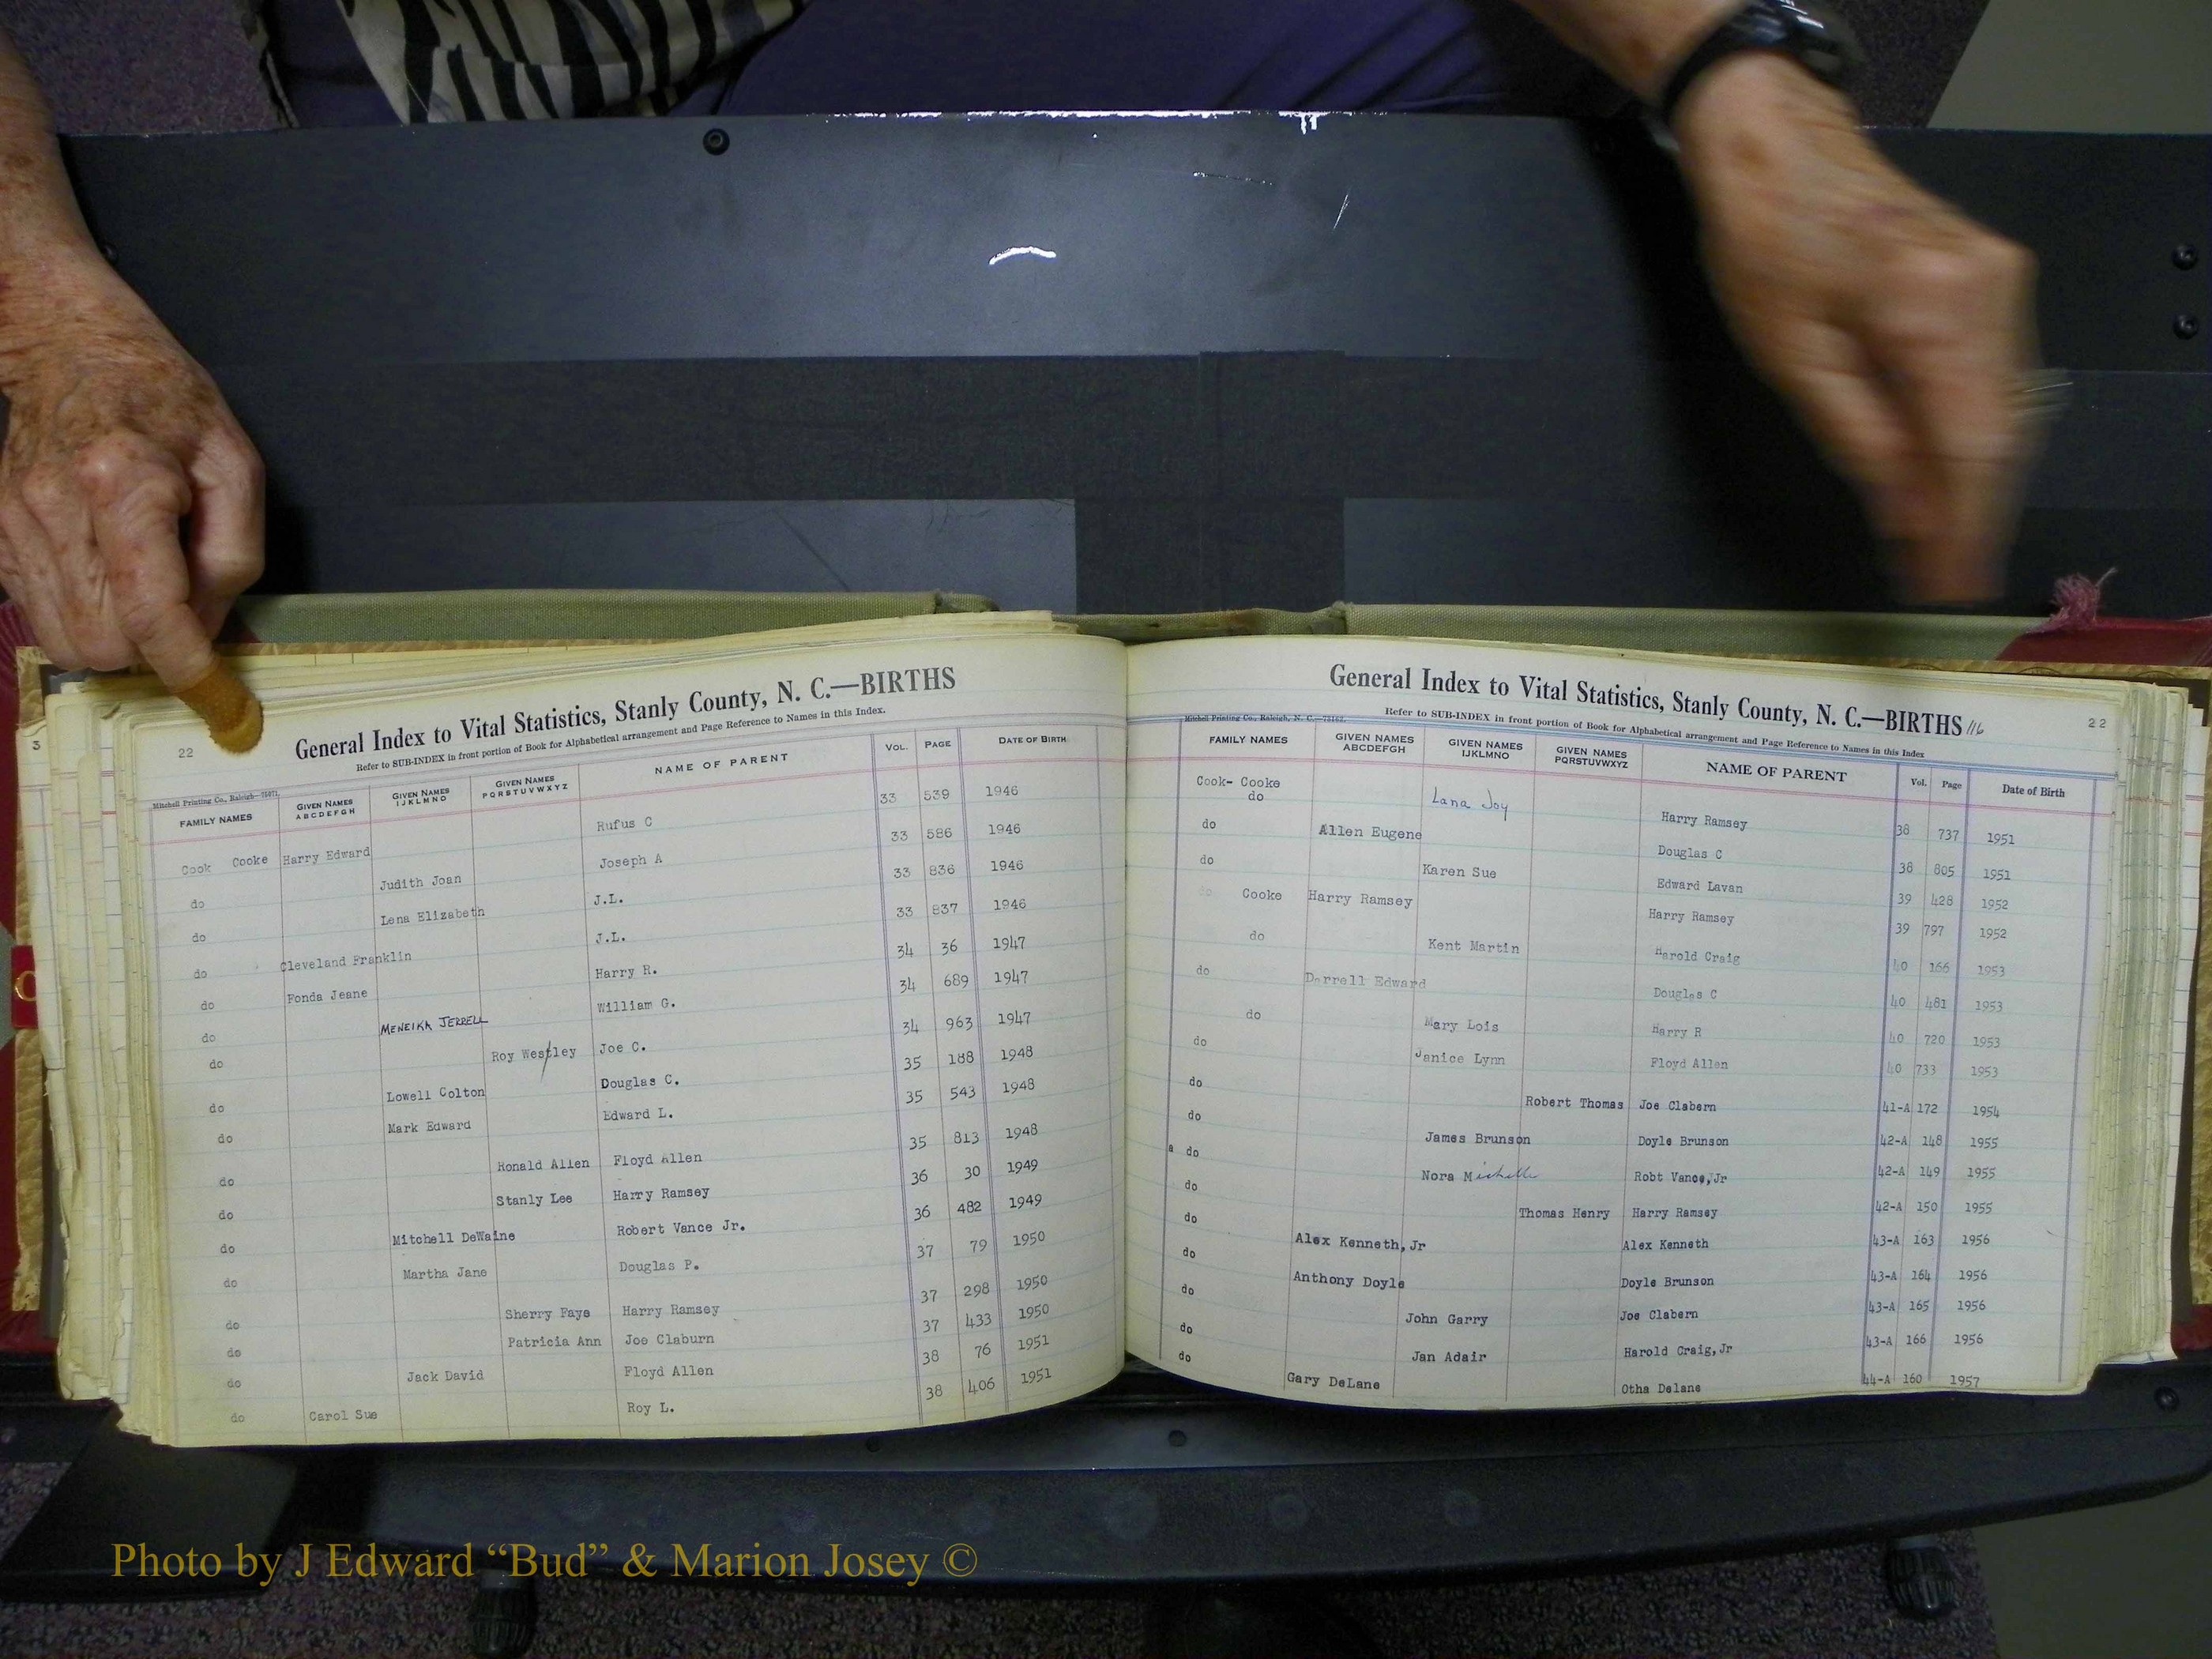 22
General Index to Vital Statistics, Stanly County, N. C.—BIRTHS
Refer to SUB-INDEX in front portion of Book for Alphabetical arrangement and Page Reference to Names in this Index.
Mitchell Printing Co., Raleigh
FAMILY NAMES GIVEN NAMES ABCDEFGH GIVEN NAMES IJKLMNO GIVEN NAMES PQRSTUVWXYZ NAME OF PARENT VOL. PAGE DATE OF BIRTH
Cook Cooke Harry Edward Rufus C 33 539 1946
do Judith Joan Joseph A 33 586 1946
do Lena Elizabeth J.L. 33 836 1946
do Cleveland Franklin J.L. 33 837 1946
do Fonda Jeane Harry R. 34 36 1947
do MENEIKA JERRELL William G. 34 689 1947
do Roy Westley Joe C. 34 963 1947
do Lowell Colton Douglas C. 35 188 1948
do Mark Edward Edward L. 35 543 1948
do Ronald Allen Floyd Allen 35 813 1948
do Stanly Lee Harry Ramsey 36 30 1949
do Mitchell DeWaine Robert Vance Jr. 36 482 1949
do Martha Jane Douglas P. 37 79 1950
do Sherry Faye Harry Ramsey 37 298 1950
do Patricia Ann Joe Claburn 37 433 1950
do Jack David Floyd Allen 38 76 1951
do Carol Sue Roy L. 38 406 1951
General Index to Vital Statistics, Stanly County, N. C.—BIRTHS 116
22
Refer to SUB-INDEX in front portion of Book for Alphabetical arrangement and Page Reference to Names in this Index
Mitchell Printing Co., Raleigh, N. C.
FAMILY NAMES GIVEN NAMES ABCDEFGH GIVEN NAMES IJKLMNO GIVEN NAMES PQRSTUVWXYZ NAME OF PARENT Vol. Page Date of Birth
Cook- Cooke
do Lana Joy Harry Ramsey 38 737 1951
do Allen Eugene Douglas C 38 805 1951
do Karen Sue Edward Lavan 39 428 1952
do Cooke Harry Ramsey Harry Ramsey 39 797 1952
do Kent Martin Harold Craig 40 166 1953
do Darrell Edward Douglas C 40 481 1953
do Mary Lois Harry R 40 720 1953
do Janice Lynn Floyd Allen 40 733 1953
do Robert Thomas Joe Clabern 41-A 172 1954
do James Brunson Doyle Brunson 42-A 148 1955
do Nora Michelle Robt Vance, Jr 42-A 149 1955
do Thomas Henry Harry Ramsey 42-A 150 1955
do Alex Kenneth, Jr Alex Kenneth 43-A 163 1956
do Anthony Doyle Doyle Brunson 43-A 164 1956
do John Garry Joe Clabern 43-A 165 1956
do Jan Adair Harold Craig, Jr 43-A 166 1956
do Gary DeLane Otha Delane 44-A 160 1957
Photo by J Edward “Bud” & Marion Josey ©